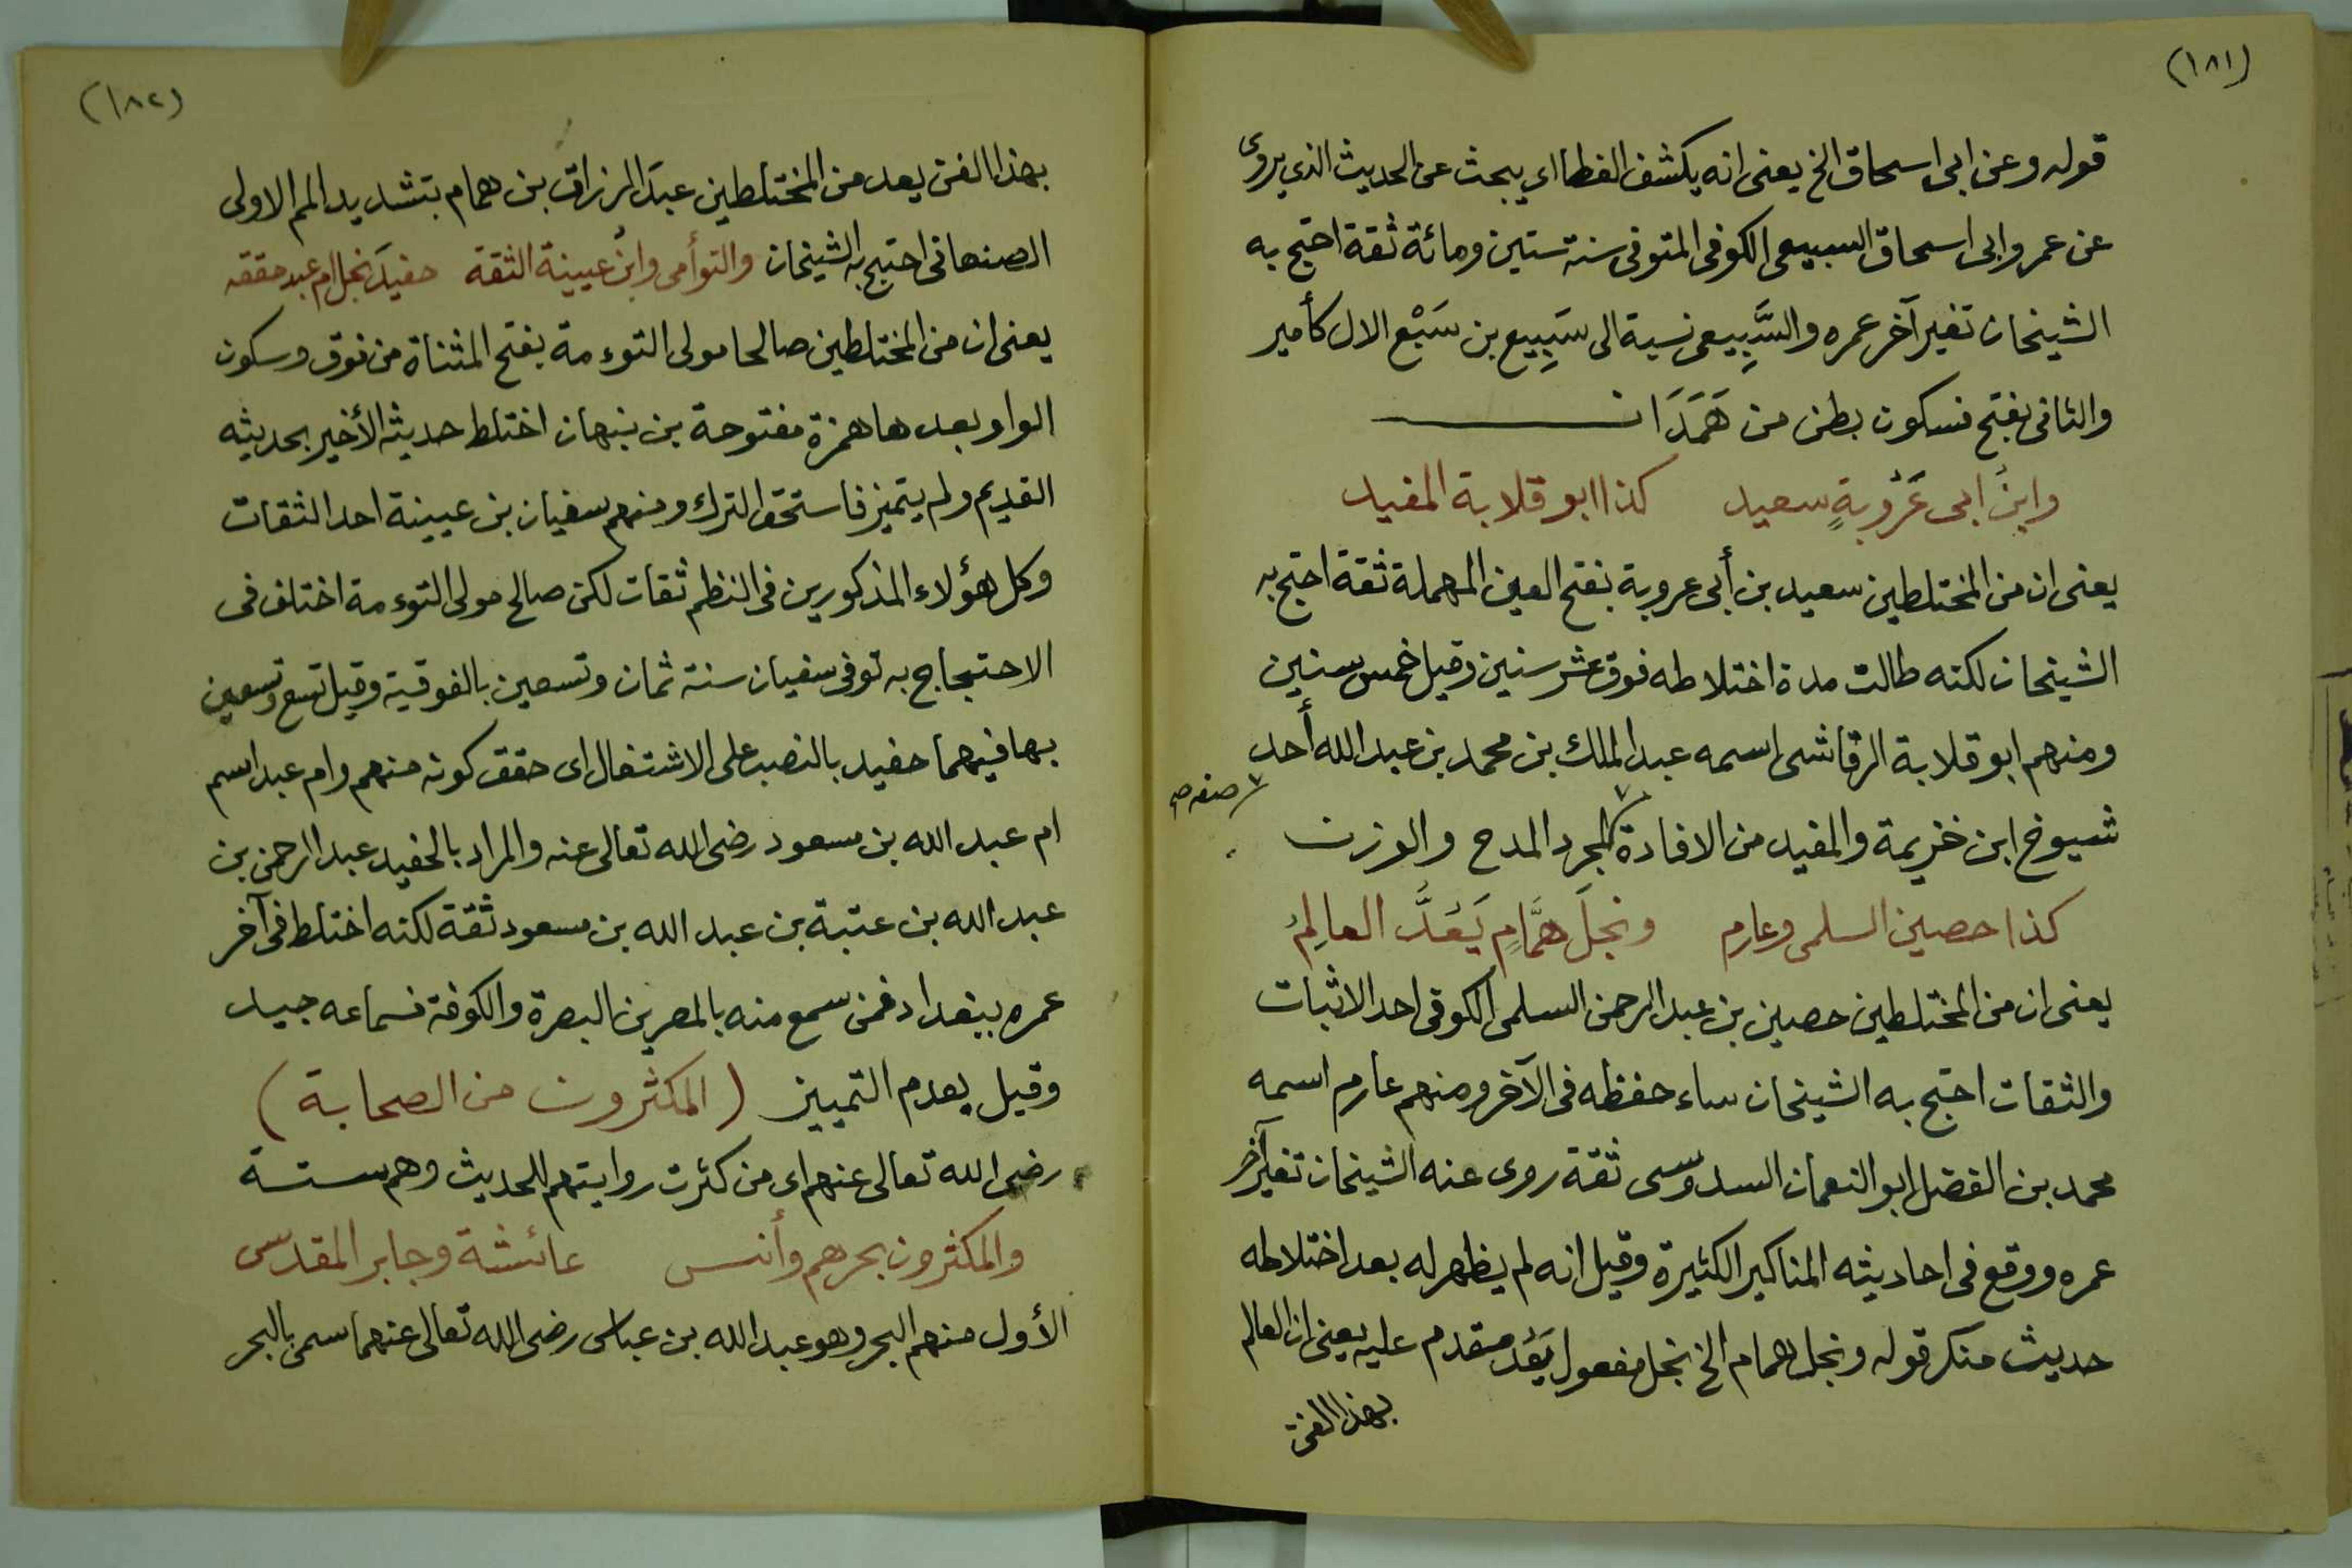 (١٨١)
قوله وعن ابى اسحاق الخ يعنى انه يكشف الغطا اي يبحث عن الحديث الذي يروى
عن عمرو ابى اسحاق السبيعى الكوفى المتوفى سنة ستين ومائة ثقة احتج به
الشيخان تغير آخر عمره والسَّبِيعى نسبة الى سَبِيع بن سَبْع الال كأمير
والثانى بفتح فسكون بطن من هَمَدَان
وابنُ ابى عَرُوبةٍ سعيد كذا ابو قلابة المفيد
يعنى ان من المختلطين سعيد بن أبى عروبة بفتح العين المهملة ثقة احتج به
الشيخان لكنه طالت مدة اختلاطه فوق عشر سنين وقيل خمس سنين
ومنهم ابو قلابة الرقاشى اسمه عبد الملك بن محمد بن عبد الله أحد
شيوخ ابن خزيمة والمفيد من الافادة لمجرد المدح والوزن
صفة صح
كذا حصين السلمى وعارم ونجلَ همَّامٍ يَعُدُّ العالِمُ
يعنى ان من المختلطين حصين بن عبد الرحمن السلمى الكوفى احد الاثبات
والثقات احتج به الشيخان ساء حفظه فى الآخر ومنهم عارم اسمه
محمد بن الفضل ابو النعمان السدوسى ثقة روى عنه الشيخان تغير آخر
عمره ووقع فى احاديثه المناكير الكثيرة وقيل انه لم يظهر له بعد اختلاطه
حديث منكر قوله ونجل همام الخ نجل مفعول يَعُدُ مقدم عليه يعنى ان العالم
بهذا الفن
(١٨٢)
بهذا الفن يعد من المختلطين عبدَ الرزاق بن همام بتشديد الميم الاولى
الصنعانى احتج به الشيخان والتوأمى وابنُ عيينة الثقة حفيدَ نجل ام عبد حققه
يعنى ان من المختلطين صالحا مولى التوءمة بفتح المثناة من فوق وسكون
الواو بعدها همزة مفتوحة بن نبهان اختلط حديثه الأخير بحديثه
القديم ولم يتميز فاستحق الترك ومنهم سفيان بن عيينة احد الثقات
وكل هؤلاء المذكورين فى النظم ثقات لكن صالح مولى التوءمة اختلف فى
الاحتجاج به توفى سفيان سنة ثمان وتسعين بالفوقية وقيل تسع وتسعين
بها فيهما حفيد بالنصب على الاشتغال اى حقق كونه منهم وام عبد اسم
ام عبد الله بن مسعود رضى الله تعالى عنه والمراد بالحفيد عبد الرحمن بن
عبد الله بن عتبة بن عبد الله بن مسعود ثقة لكنه اختلط فى آخر
عمره ببغداد فمن سمع منه بالمصرين البصرة والكوفة فسماعه جيد
وقيل بعدم التمييز (المكثرون من الصحابة)
رضى الله تعالى عنهم اى من كثرت روايتهم للحديث وهم ستة
والمكثرون بحرهم وأنس عائشة وجابر المقدس
الأول منهم البحر وهو عبد الله بن عباس رضى الله تعالى عنهما سمى بالبحر